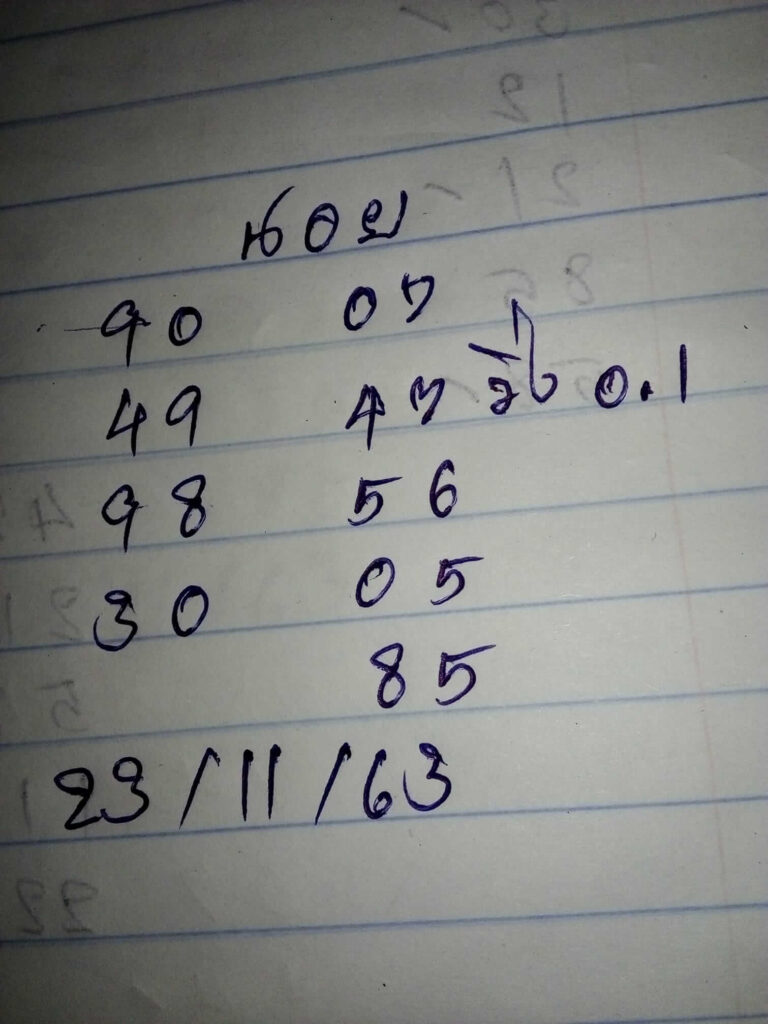 ฮานอย
90 07
49 47 วิ่ง 0.1
98 56
30 05
85
23/11/63